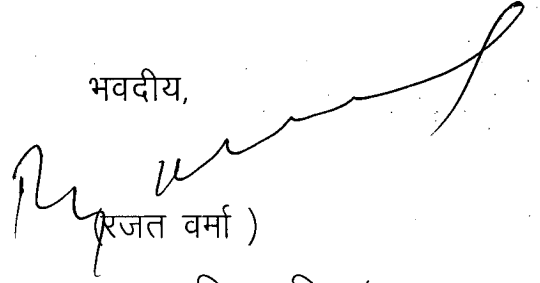 भवदीय,
(रजत वर्मा )